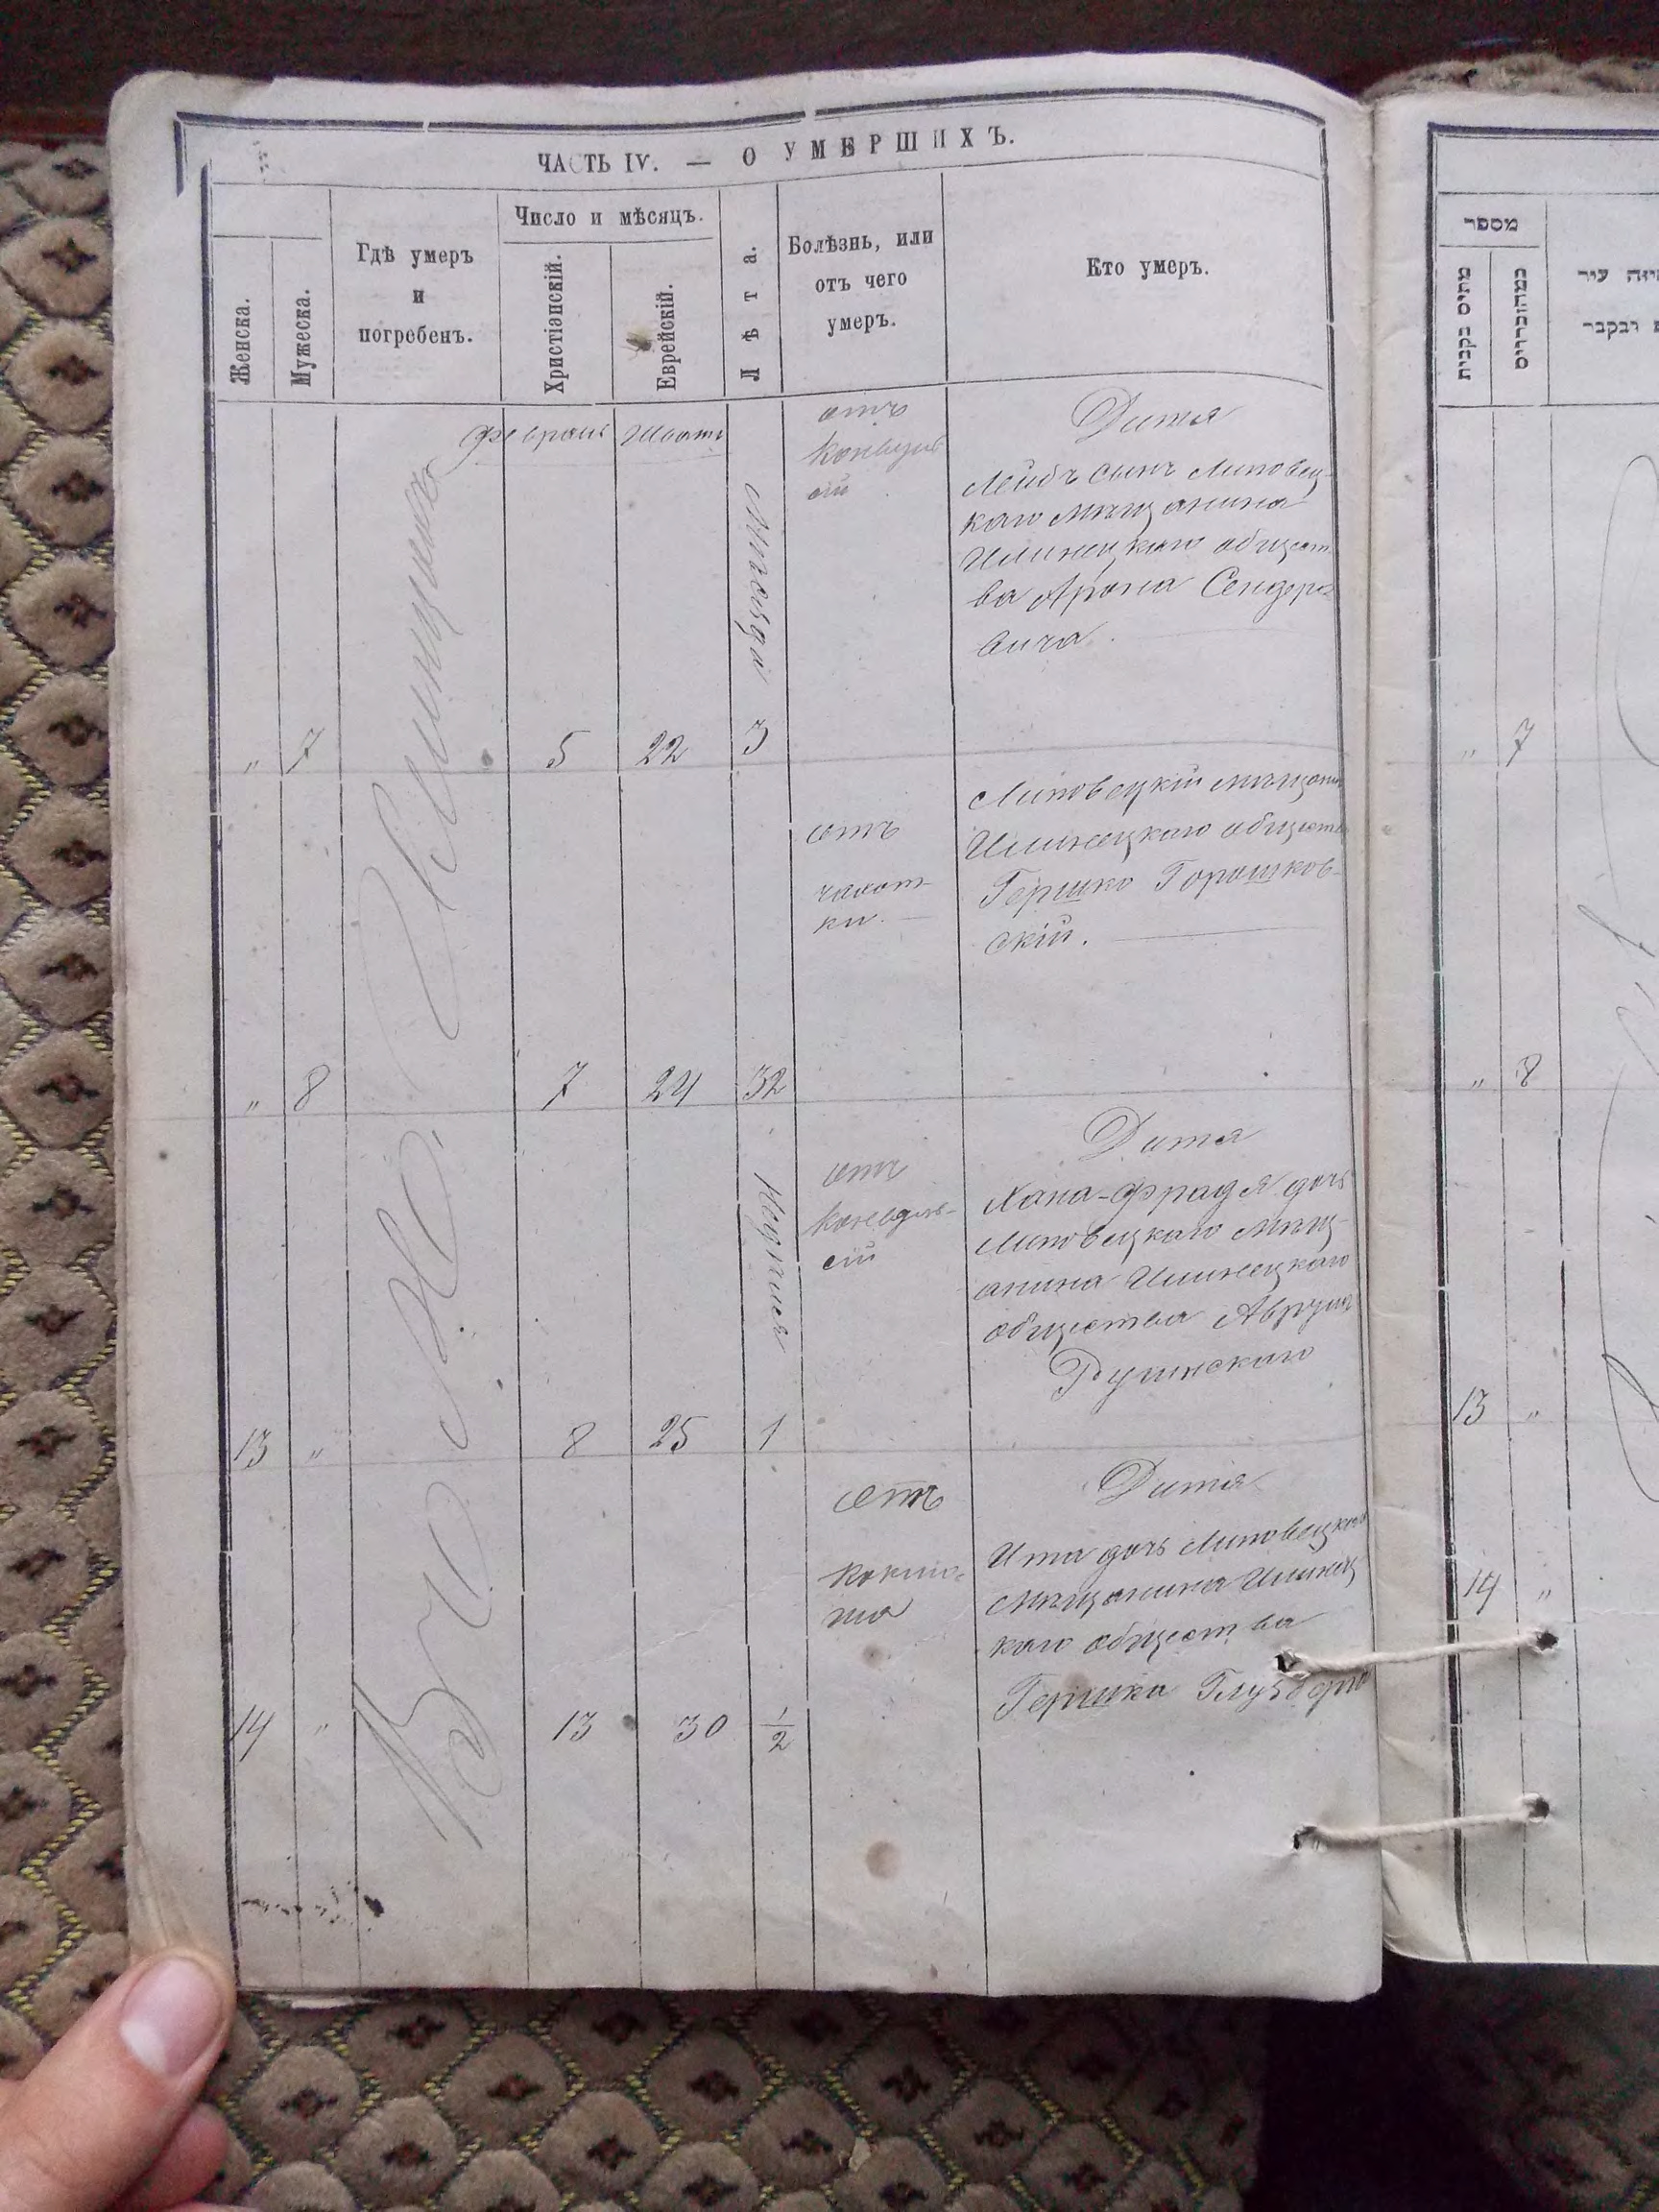 ЧАСТЬ IV. — О УМЕРШИХЪ.
Женска.
Мужеска.
Гдѣ умеръ
и
погребенъ.
Число и мѣсяцъ.
Христіанскій.
Еврейскій.
Лѣта.
Болѣзнь, или
отъ чего
умеръ.
Кто умеръ.
Февраль Шватъ
Въ М. Илинцахъ
„ 7 5 22
Мѣсяца 3
отъ
конвуль
сій
Дитя
Лейбъ сынъ Липовец-
каго мѣщанина
Илинецкаго общест
ва Арона Сендеро
вича.
„ 8 7 24 32
отъ
чахот-
ки.
Липовецкій мѣщани
Илинецкаго общества
Гершко Горошков-
скій.
13 „ 8 25
Недѣля 1
отъ
конвуль-
сій
Дитя
Хана-Фрадя дочь
Липовецкаго мѣщ-
анина Илинецкаго
общества Аврума
Ружинскаго
14 „ 13 30 1/2
отъ
коклю-
ша
Дитя
Ита дочь Липовецкаго
мѣщанина Илинец
каго общества
Гершка
מספר
מתים נקבות
במה זכרים
7
„ 8
13 „
14 „